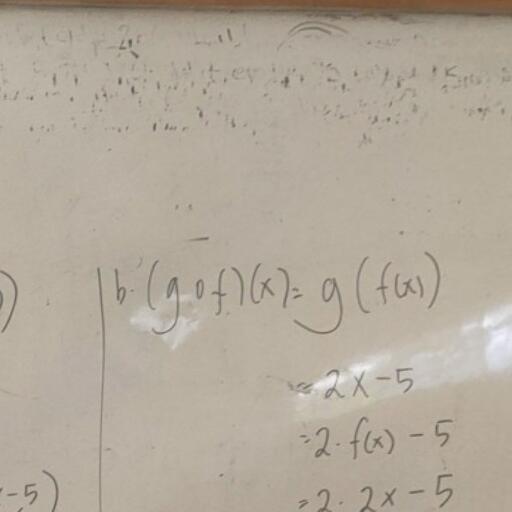 )
b. (g o f)(x) = g (f(x))
= 2x - 5
= 2 . f(x) - 5
-5)
= 2 . 2x - 5